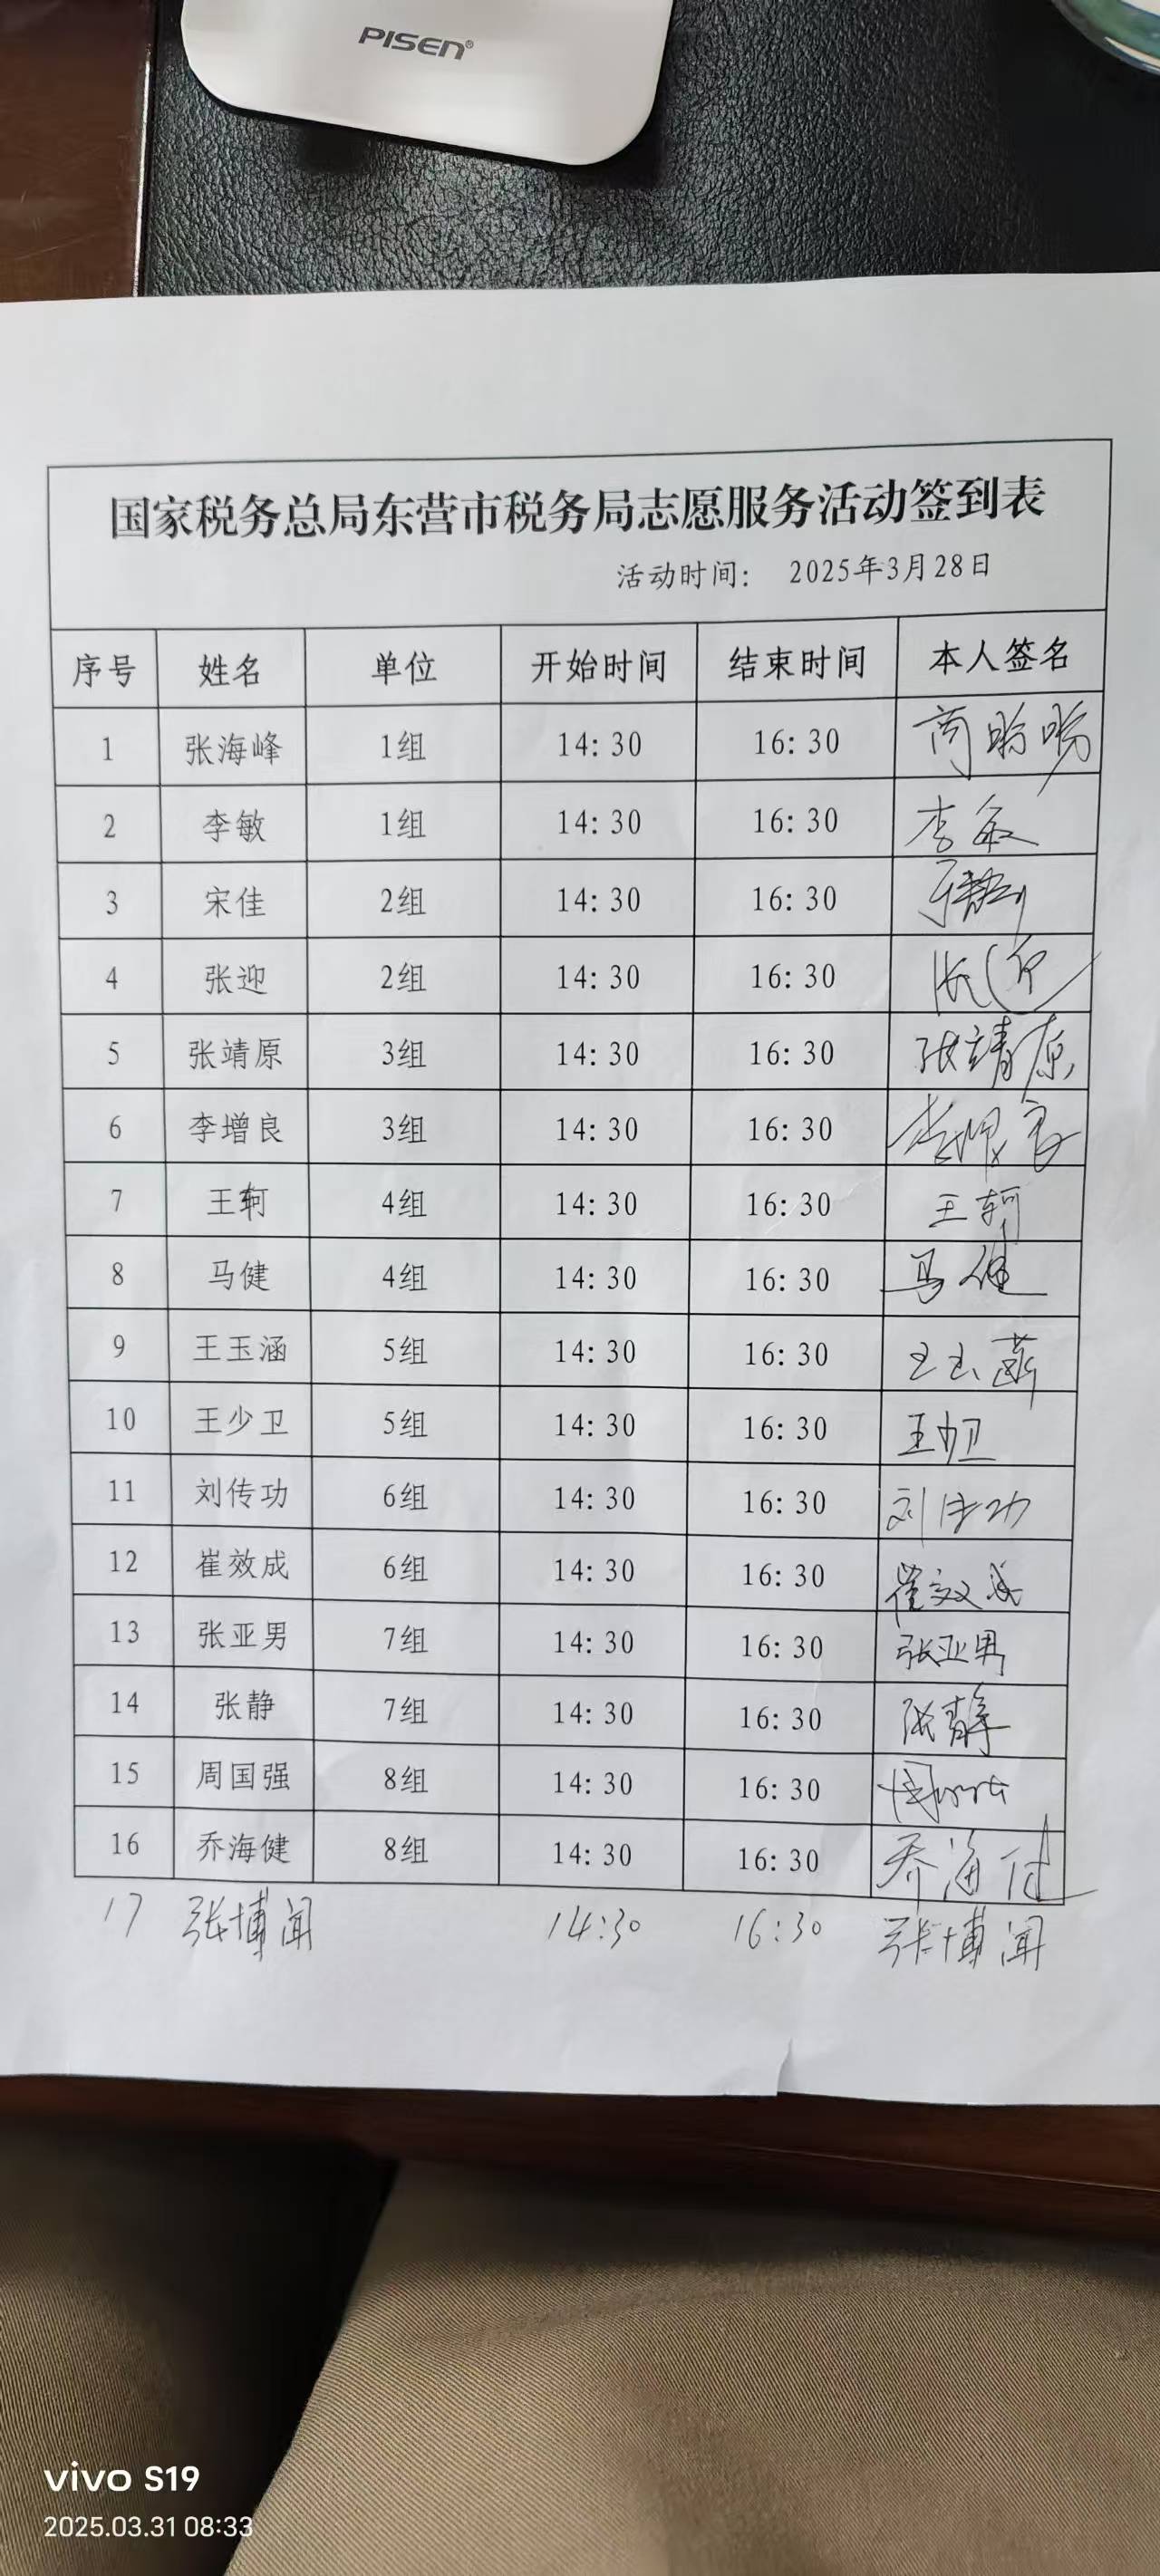 PISEN®
国家税务总局东营市税务局志愿服务活动签到表
活动时间： 2025年3月28日
序号 姓名 单位 开始时间 结束时间 本人签名
1 张海峰 1组 14:30 16:30
2 李敏 1组 14:30 16:30 李敏
3 宋佳 2组 14:30 16:30
4 张迎 2组 14:30 16:30 张迎
5 张靖原 3组 14:30 16:30 张靖原
6 李增良 3组 14:30 16:30 李增良
7 王轲 4组 14:30 16:30 王轲
8 马健 4组 14:30 16:30 马健
9 王玉涵 5组 14:30 16:30
10 王少卫 5组 14:30 16:30 王少卫
11 刘传功 6组 14:30 16:30 刘传功
12 崔效成 6组 14:30 16:30 崔效成
13 张亚男 7组 14:30 16:30 张亚男
14 张静 7组 14:30 16:30 张静
15 周国强 8组 14:30 16:30
16 乔海健 8组 14:30 16:30 乔海健
17 张博闻 14:30 16:30 张博闻
vivo S19
2025.03.31 08:33